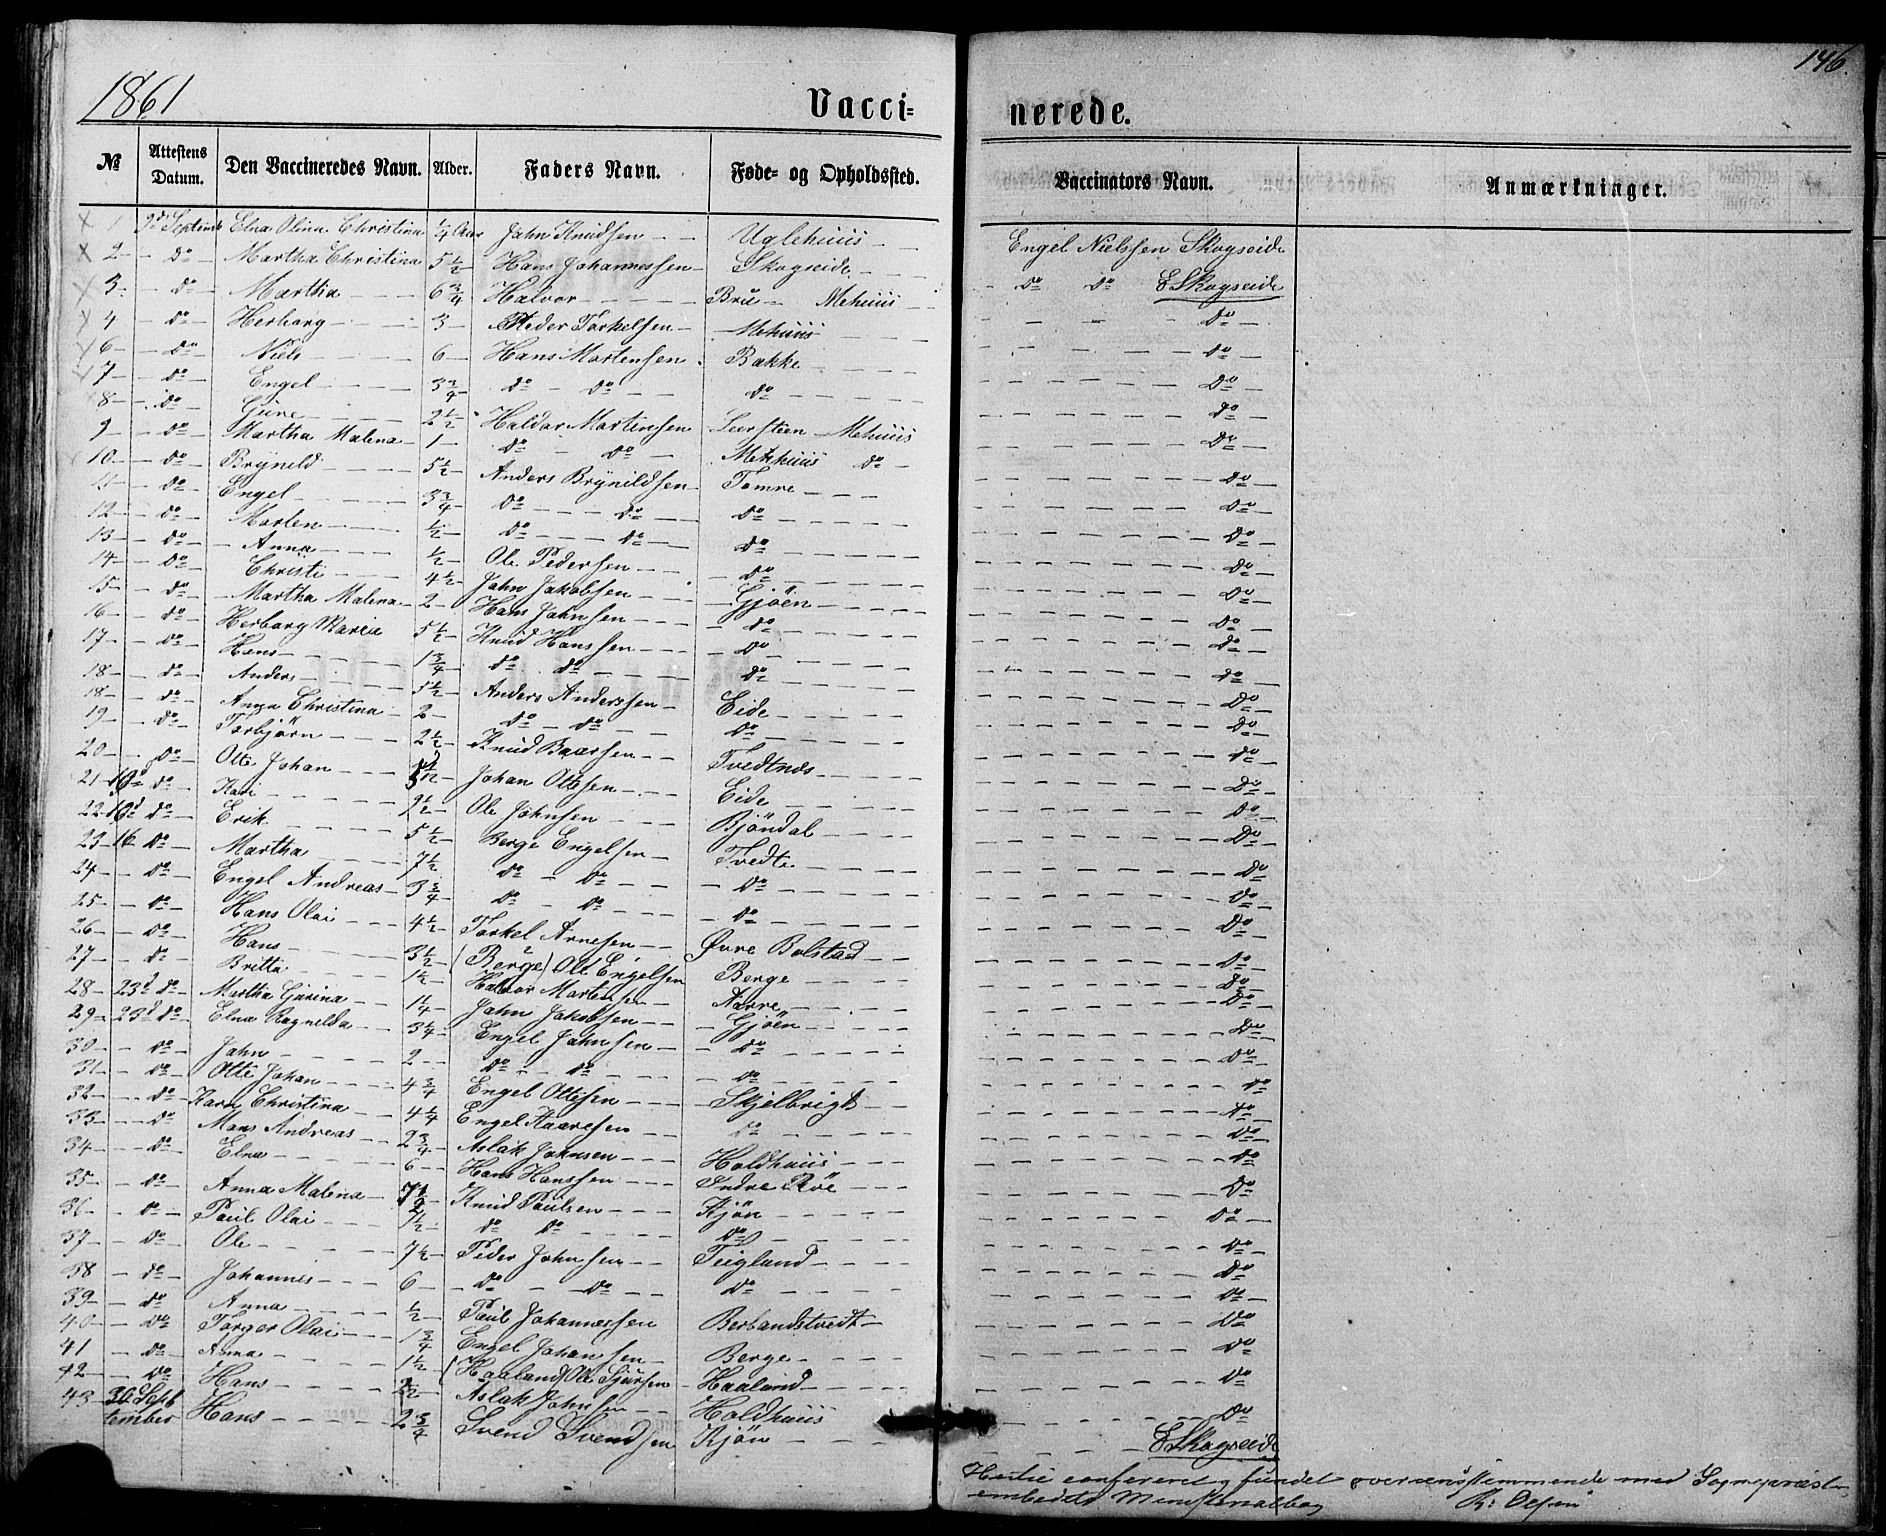 1861
146.
Vacci- nerede.
№ Attestens Datum. Den Vaccineredes Navn. Alder. Faders Navn. Føde- og Opholdssted. Vaccinators Navn. Anmærkninger.
1 9d Septemb Elna Olina Christina 1/4 Aar John Knudsen Uglehuus Engel Nielssen Skogseide
2 do Martha Christina 5 1/2 Hans Johannessen Skogseide do do ESkogseide
3 do Martha 6 3/4 Halvor Bru Mehuus do
4 do Herborg 3 Peder Torkelsen Mehuus do
6 do Niels 6 Hans Mortensen Bakke do
7 do Engel 3 3/4 do do do do
8 do Gure 2 1/2 Haldor Mortensen Leersteen Mehuus do
9 do Martha Malena 1 do do Mehhuus do do
10 do Bryneld 5 1/2 Anders Brynildsen Tomre do
11 do Engel 3 3/4 do do do do
12 do Morten 1/2 do do do do
13 do Anna 1/2 Ole Pedersen do do
14 do Christi 4 1/2 John Jakobsen Gjöen do
15 do Martha Malena 2 Hans Johnsen do do
16 do Herborg Maria 5 1/2 Knud Hanssen do do
17 do Hans 1 3/4 do do do do
18 do Anders 5 1/2 Anders Anderssen Eide do
18 do Anna Christina 2 do do do do
19 do Torbjörn 2 1/2 Knud Baarsen Tvedtnes do
20 do Otte Johan Johan Ottesen Eide do
21 do Kari 9 1/2 Ole Johnsen Bjöndal do
22 do Erik 5 1/2 Berge Engelsen Tvedte do
23 16 do Martha 7 1/2 do do do do
24 do Engel Andreas 3 3/4 do do do do
25 do Hans Olai 4 1/2 Torkel Arnesen Øvre Bolstad do
26 do Hans 3 1/2 (Berge) Ole Engelsen Berge do
27 do Britta 1 1/2 Halvor Mortensen Aarre do
28 23d do Martha Gurina 1 1/4 John Jakobsen Gjöen do
29 23d do Elna Ragnilda 3 1/4 Engel Johnsen do do
30 do John 2 do do do do
31 do Otte Johan 4 3/4 Engel Ottesen Skjelbrigt do
32 do Kari Christina 4 1/4 Engel Kaaresen do do
33 do Mons Andreas 2 3/4 Aslak Johnsen Holdhuus do
34 do Elna 6 Hans Hanssen Indre Röe do
35 do Anna Malena Knud Paulsen Kjön do
36 do Paul Olai 7 1/2 do do do do
37 do Ole 7 1/2 Peder Johnsen Teigland do
38 do Johannes 6 do do do do
39 do Anna 1/2 Paul Johannessen Berhandstvedt do
40 do Torger Olai 1 3/4 Engel Johansen Berge do
41 do Anna 1 1/2 (Haaland) Ole Sjursen Haaland do
42 do Hans Aslak Johnsen Holdhuus do
43 30 September Hans 2 3/4 Svend Svendsen Kjön ESkogseide
confereret og fundet overensstemmende med Sognepræst-
embedets Ministerialbog R: Olsen